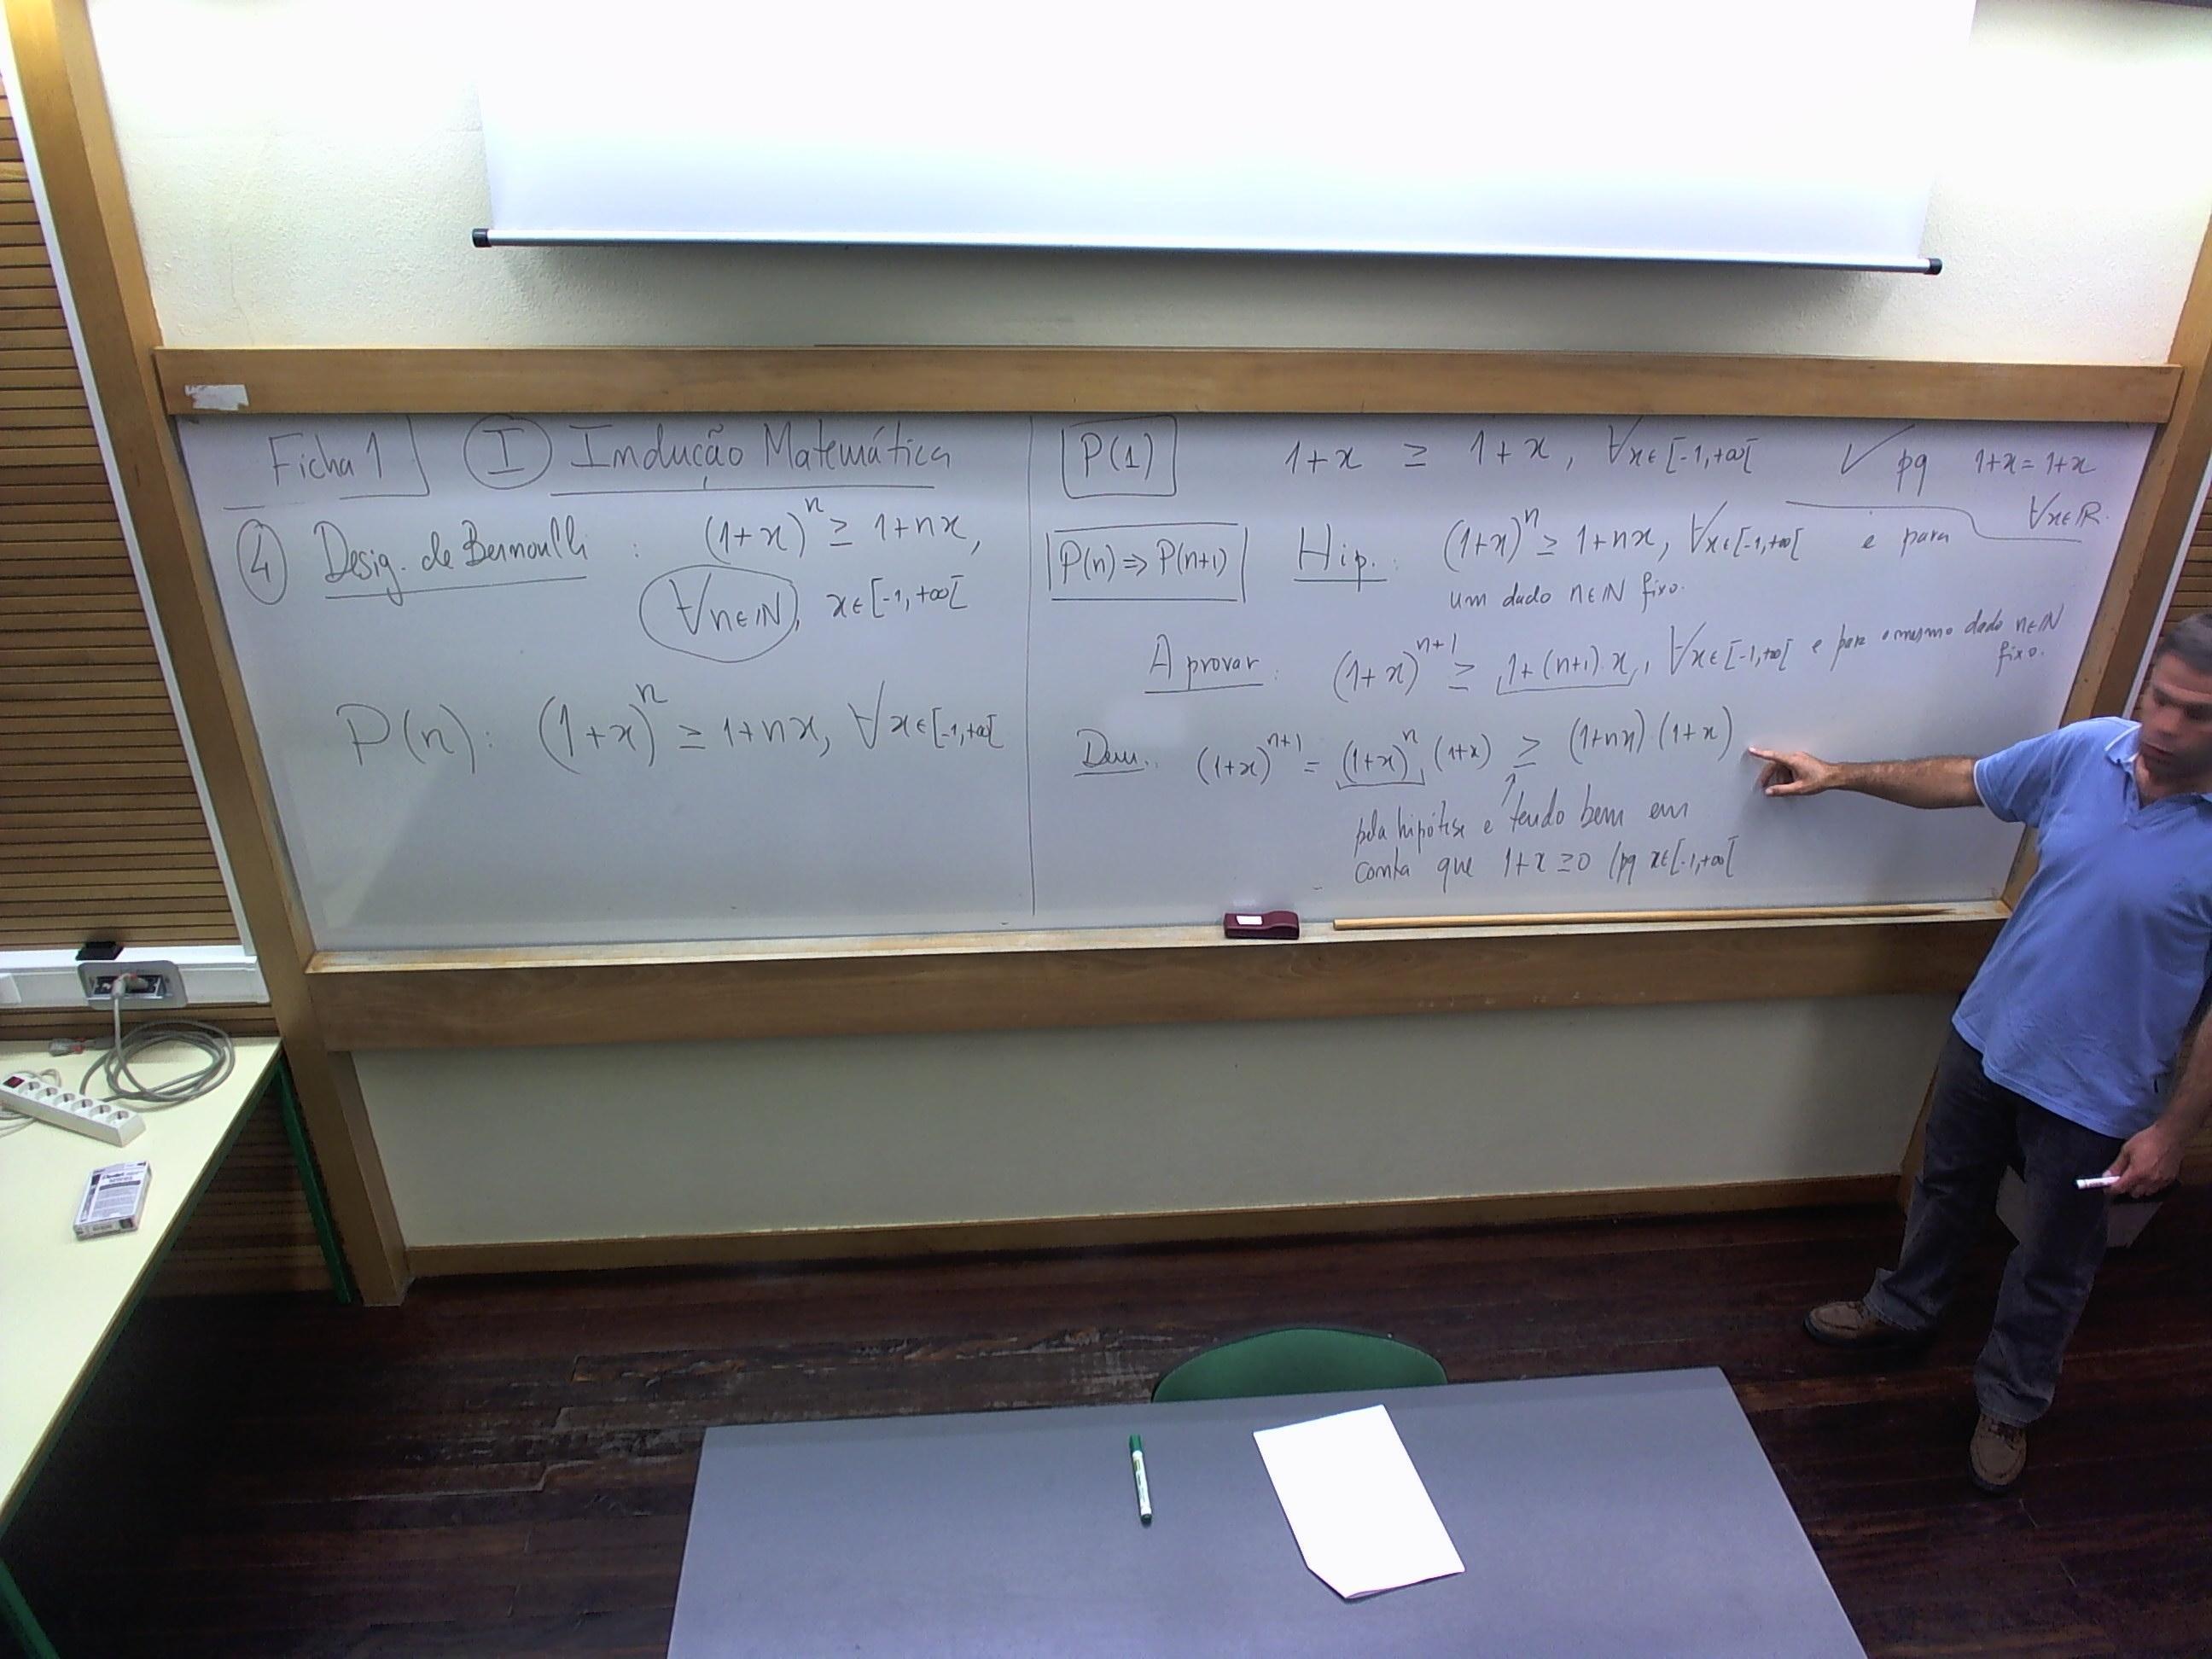 Ficha 1 I Indução Matemática
4 Desig. de Bernoulli : (1+x)^n ≥ 1+nx,
∀n∈ℕ, x∈[-1,+∞[
P(n): (1+x)^n ≥ 1+nx, ∀x∈[-1,+∞[
P(1) 1+x ≥ 1+x, ∀x∈[-1,+∞[ ✓ pq 1+x=1+x
∀x∈ℝ.
P(n) ⇒ P(n+1) Hip.: (1+x)^n ≥ 1+nx, ∀x∈[-1,+∞[ e para
um dado n∈ℕ fixo.
A provar: (1+x)^{n+1} ≥ 1+(n+1)x, ∀x∈[-1,+∞[ e para o mesmo dado n∈ℕ
fixo.
Dem.: (1+x)^{n+1} = (1+x)^n (1+x) ≥ (1+nx)(1+x)
↑
pela hipótese e tendo bem em
conta que 1+x ≥ 0 (pq x∈[-1,+∞[